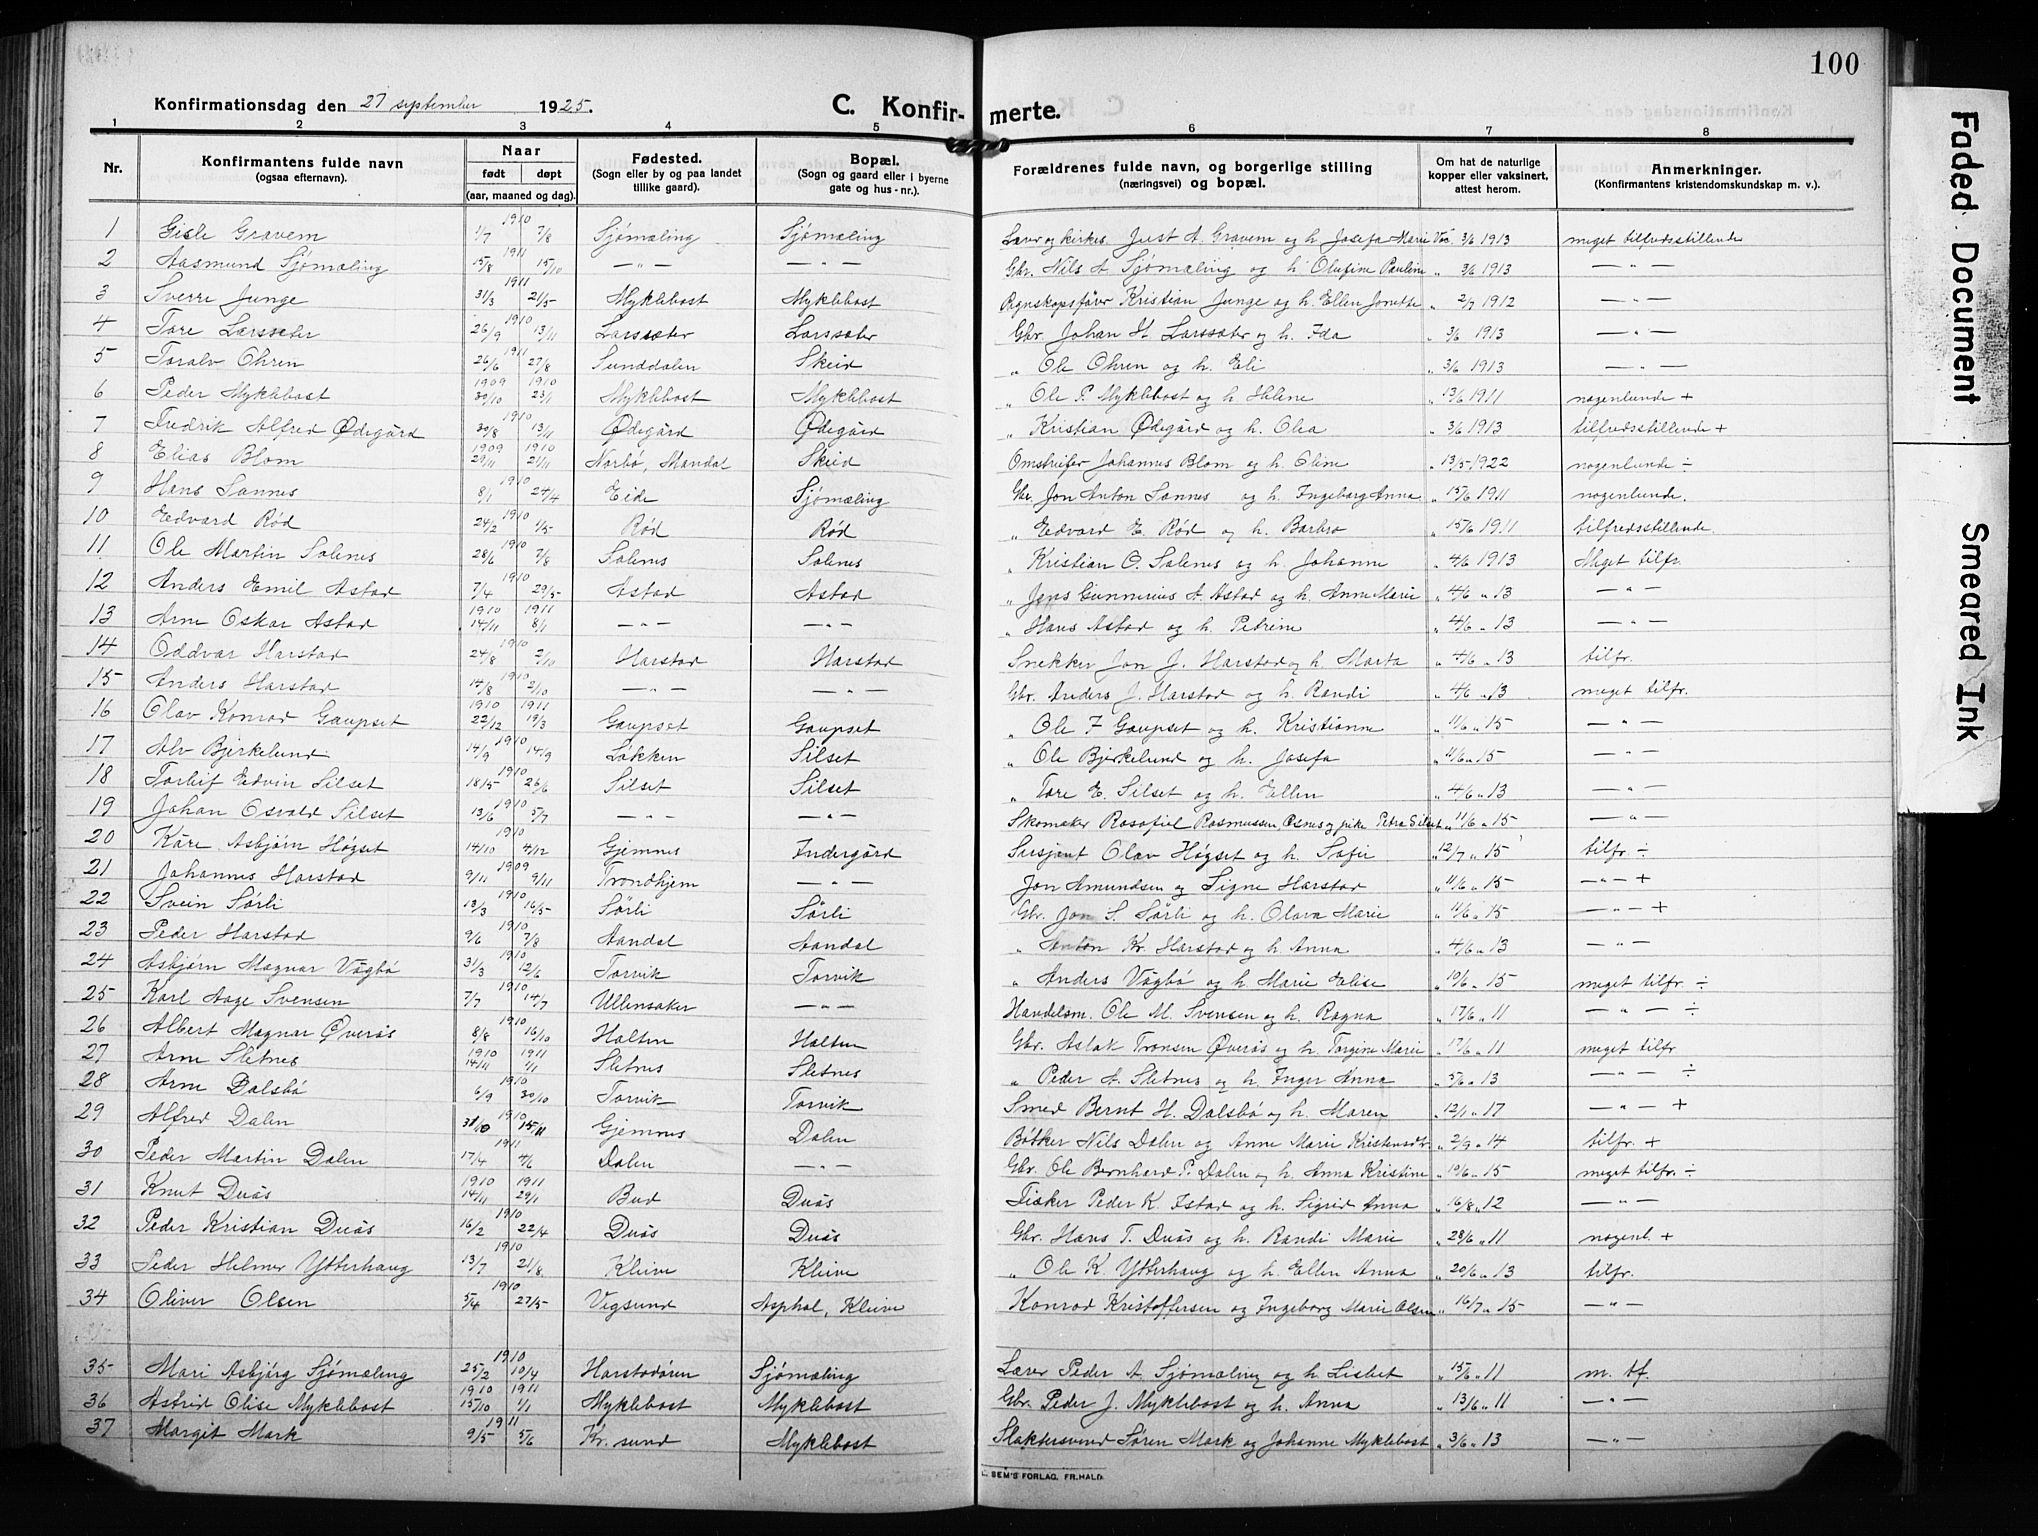 100
Konfirmationsdag den 27 september 1925. C. Konfir- merte.
1 2 3 4 5 6 7 8
Nr. Konfirmantens fulde navn (ogsaa efternavn). Naar født døpt (aar, maaned og dag). Fødested. (Sogn eller by og paa landet tillike gaard). Bopæl. (Sogn og gaard eller i byerne gate og hus-nr.). Forældrenes fulde navn, og borgerlige stilling (næringsvei) og bopæl. Om hat de naturlige kopper eller vaksinert, attest herom. Anmerkninger. (Konfirmantens kristendomskundskap m. v.).
1 Gisle Gravem 1910 1/7 7/8 Sjømæling Sjømæling Lærer og kirkes. Just A. Gravem og h. Josefa Marie Vac. 3/6 1913 meget tilfredsstillende
2 Aasmund Sjømæling 1911 15/8 15/10 — " — — " — Gbr. Nils A. Sjømæling og h. Olufine Pauline " 3/6 1913 — " —
3 Sverre Junge 1911 31/3 21/5 Myklebost Myklebost Regnskapsfører Kristian Junge og h. Ellen Jonette " 2/7 1912 — " —
4 Tore Larssæter 1910 26/9 13/11 Larssæter Larssæter Gbr. Johan H. Larssæter og h. Ida " 3/6 1913 — " —
5 Toralv Ohren 1911 26/6 27/8 Sunddalen Skeid " Ole Ohren og h. Eli " 3/6 1913 — " —
6 Peder Myklebost 1909 1910 30/10 23/1 Myklebost Myklebost " Ole P. Myklebost og h. Helene " 13/6 1911 nogenlunde +
7 Fredrik Alfred Ødegård 1910 30/8 13/11 Ødegård Ødegård " Kristian Ødegård og h. Olea " 3/6 1913 tilfredsstillende +
8 Elias Blom 1909 1910 29/11 21/11 Norbø, Mandal Skeid Omstreifer Johannes Blom og h. Oline " 13/5 1922 nogenlunde ÷
9 Hans Sannes 1910 8/1 24/4 Eide Sjømæling Gbr. Jon Anton Sannes og h. Ingeborg Anna " 15/6 1911 nogenlunde.
10 Edvard Rød 1910 24/2 1/5 Rød Rød " Edvard E. Rød og h. Barbro " 15/6 1911 tilfredsstillende.
11 Ole Martin Solenes 1910 28/6 7/8 Solenes Solenes " Kristian O. Solenes og h. Johanne " 4/6 1913 Meget tilfr.
12 Anders Emil Astad 1910 7/4 29/5 Astad Astad " Jens Gunnerius A. Astad og h. Anne Marie " 4/6 " 13 — " —
13 Arne Oskar Astad 1910 1911 14/11 8/1 — " — — " — " Hans Astad og h. Petrine " 4/6 " 13 — " —
14 Oddvar Harstad 1910 24/8 2/10 Harstad Harstad Snekker Jon J. Harstad og h. Marta " 4/6 " 13 tilfr.
15 Anders Harstad 1910 14/8 2/10 — " — — " — Gbr. Anders J. Harstad og h. Randi " 4/6 " 13 meget tilfr.
16 Olav Konrad Gaupset 1910 1911 22/12 19/3 Gaupset Gaupset " Ole F Gaupset og h. Kristianne " 11/6 " 15 — " —
17 Alv Bjerkelund 1910 14/9 14/9 Løkken Silset " Ole Bjerkelund og h. Josefa " 11/6 " 15 — " —
18 Torleif Edvin Silset 1910 18/5 26/6 Silset Silset " Tore E. Silset og h. Ellen " 4/6 " 13 — " —
19 Johan Osvald Silset 1910 13/6 5/7 — " — — " — Skomaker Rasmussen og pike Petra Silset " 11/6 " 15 — " —
20 Kåre Asbjørn Høgset 1910 14/10 4/12 Gjemnes Indergård Sersjant Olav Høgset og h. Sofie " 12/7 " 15 tilfr. ÷
21 Johannes Harstad 1909 9/11 9/11 Trondhjem — " — Jon Amundsen og Signe Harstad " 11/6 " 15 — " — +
22 Svein Sørli 1910 13/3 16/5 Sørli Sørli Gbr. Jon S. Sørli og h. Olava Marie " 11/6 " 15 — " — +
23 Peder Harstad 1910 9/6 7/8 Aandal Aandal " Anton Kr. Harstad og h. Anna " 4/6 " 13 — " —
24 Asbjørn Magnar Vågbø 1910 31/3 12/6 Torvik Torvik " Anders Vågbø og h. Marie Elise " 10/6 " 15 meget tilfr. ÷
25 Karl Aage Svensen 1910 7/7 14/7 Ullensaker — " — Handelsm. Ole M. Svensen og h. Ragna " 17/6 " 11 — " — ÷
26 Albert Magnar Øverås 1910 8/8 16/10 Holten Holten Gbr. Aslak Tronsen Øverås og h. Torgine Marie " 17/6 " 11 meget tilfr
27 Arne Sletnes 1910 1911 14/11 1/1 Sletnes Sletnes " Peder A. Sletnes og h. Inger Anna " 5/6 " 13 — " — ÷
28 Arne Dalsbø 1910 6/9 30/10 Torvik Torvik Smed Bernt H. Dalsbø og h. Maren " 12/1 " 17 — " — +
29 Alfred Dalen 1910 31/10 15/11 Gjemnes Dalen Bøtker Nils Dalen og Anne Marie Kristensdtr. " 2/9 " 14 tilfr. +
30 Peder Martin Dalen 1911 17/4 4/6 Dalen — " — Gbr. Ole Bernhard P. Dalen og h. Anna Kristine " 10/6 " 15 meget tilfr. ÷
31 Knut Duås 1910 1911 14/11 29/1 Bud Duås Fisker Peder K. Istad og h. Sigrid Anna " 16/8 " 12 — " —
32 Peder Kristian Duås 1910 16/2 22/4 Duås Duås Gbr. Hans T. Duås og h. Randi Marie " 28/6 " 11 nogenl. +
33 Peder Helmer Ytterhaug 1910 13/7 21/8 Kleive Kleive " Ole K. Ytterhaug og h. Ellen Anna " 20/6 " 13 tilfr.
34 Oliver Olsen 1910 5/4 27/5 Vigsund Asphol, Kleive Konrad Kristoffersen og Ingeborg Marie Olsen " 16/7 " 15 — " —
35 Mari Asbjørg Sjømæling 1910 25/2 10/4 Harstadøren Sjømæling Lærer Peder A. Sjømæling og h. Lisbet " 15/6 " 11 m. tf.
36 Astrid Olise Myklebost 1910 1911 15/10 1/1 Myklebost Myklebost Gbr. Peder J. Myklebost og h. Anna " 13/6 " 11 — " —
37 Margit Mark 1911 9/5 5/6 Kr.sund Myklebost Slaktersvend Søren Mark og Johanne Myklebost " 3/6 " 13 — " —
SEM'S FORLAG, FR.HALD.
Faded Document
Smeared Ink